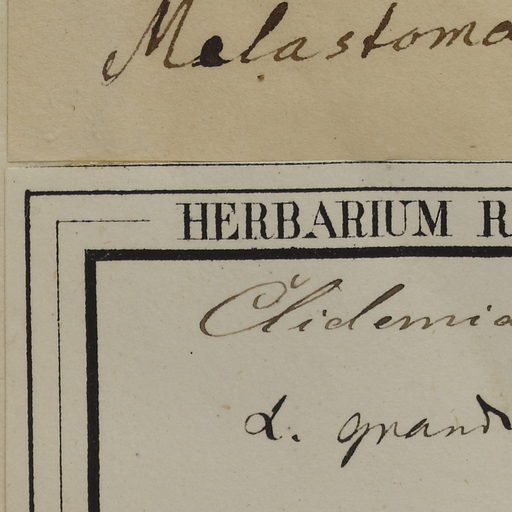 Melastoma
HERBARIUM R
Clidemia
α. grand